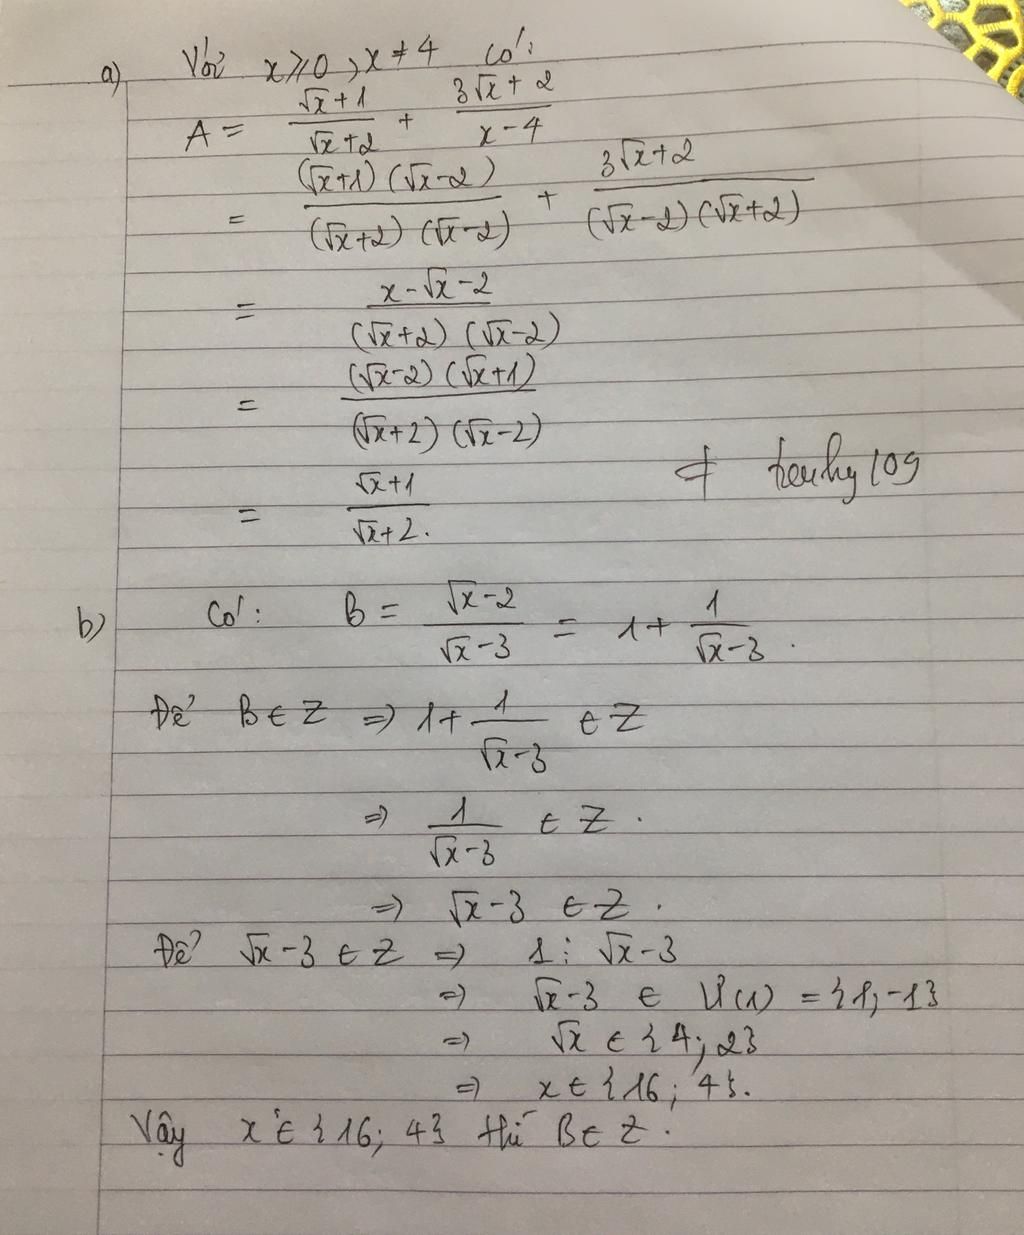 a) Với x ≥ 0, x ≠ 4 có:
A = (√x+1)/(√x+2) + (3√x+2)/(x-4)
= ((√x+1)(√x-2))/((√x+2)(√x-2)) + (3√x+2)/((√x-2)(√x+2))
= (x-√x-2)/((√x+2)(√x-2))
= ((√x-2)(√x+1))/((√x+2)(√x-2))
= (√x+1)/(√x+2).
109
b) Có: B = (√x-2)/(√x-3) = 1 + 1/(√x-3).
Để B ∈ Z => 1 + 1/(√x-3) ∈ Z
=> 1/(√x-3) ∈ Z.
=> √x-3 ∈ Z.
Để √x-3 ∈ Z => 1 ⋮ √x-3
=> √x-3 ∈ Ư(1) = {1; -1}
=> √x ∈ {4; 2}
=> x ∈ {16; 4}.
Vậy x ∈ {16; 4} thì B ∈ Z.